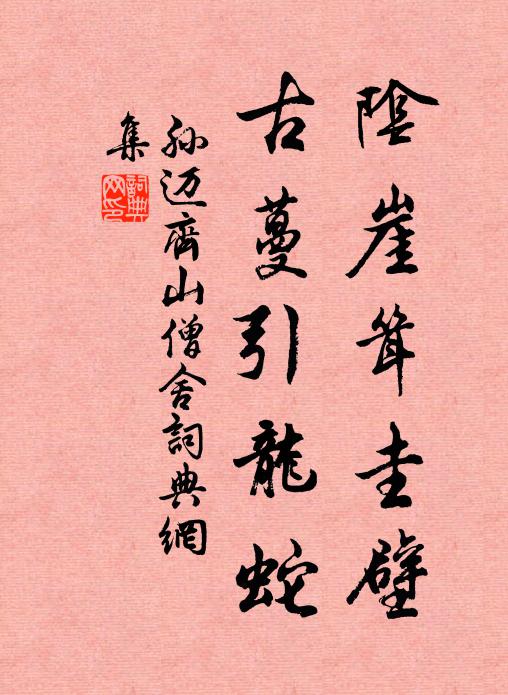 陰崖聳圭璧
古蔓引龍蛇
孙迈齊山僧舍詞典網
集
詞典
网印